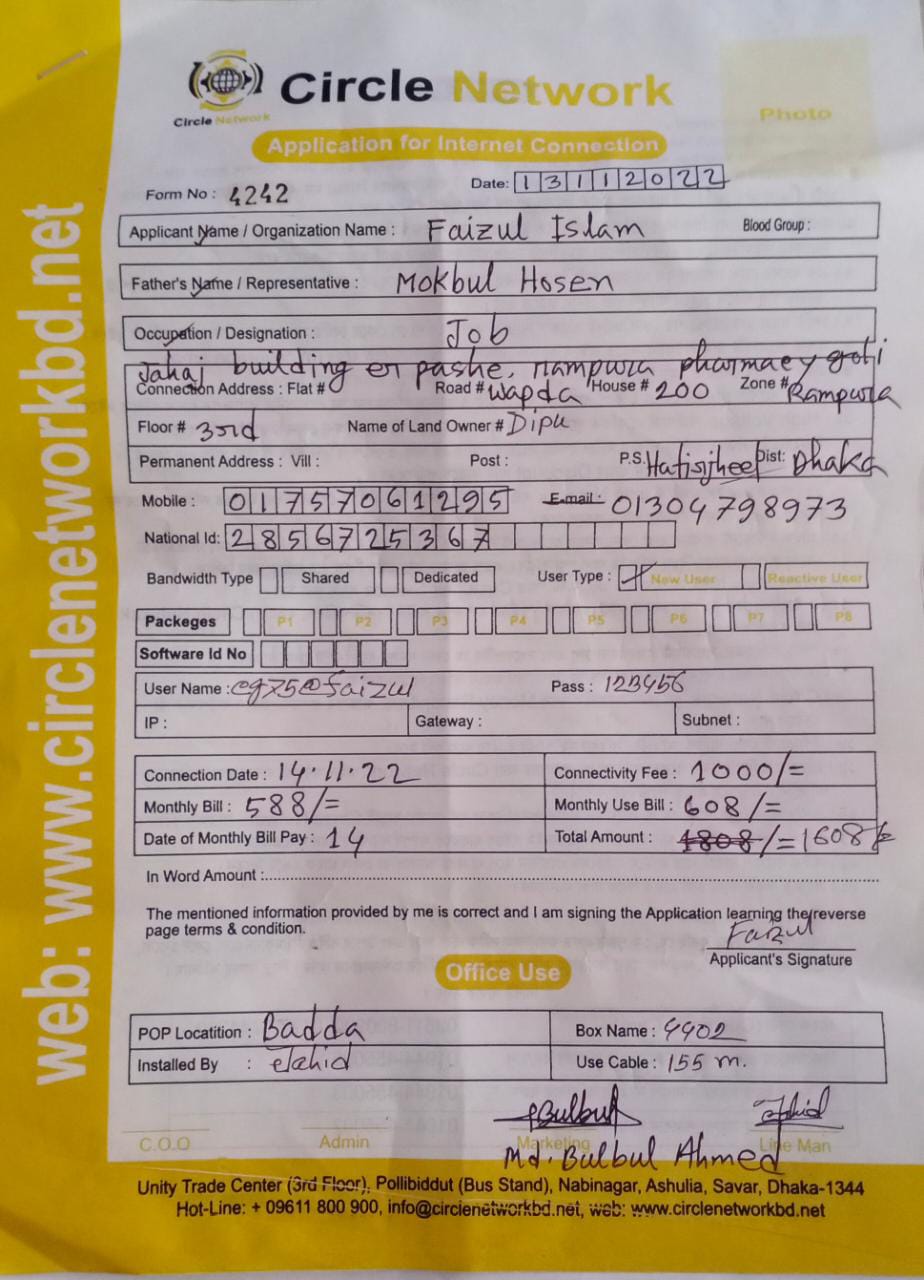 Circle Network
Circle Network
Photo
Application for Internet Connection
Form No : 4242
Date: 13112022
Applicant Name / Organization Name : Faizul Islam Blood Group :
Father's Name / Representative : Mokbul Hosen
Occupation / Designation : Job
Jahaj building er pashe, rampura pharmaey goli
Connection Address : Flat # Road # Wapda House # 200 Zone # Rampura
Floor # 3rd Name of Land Owner # Dipu
Permanent Address : Vill : Post : P.S. Hatirjheel Dist: Dhaka
Mobile : 01757061295 E-mail : 01304798973
National Id: 2856725367
Bandwidth Type Shared Dedicated User Type : New User Reactive User
Packeges P1 P2 P3 P4 P5 P6 P7 P8
Software Id No
User Name : @faizul Pass : 123456
IP : Gateway : Subnet :
Connection Date : 14.11.22 Connectivity Fee : 1000/=
Monthly Bill : 588/= Monthly Use Bill : 608/=
Date of Monthly Bill Pay : 14 Total Amount : 1808/= 1608/=
In Word Amount :
The mentioned information provided by me is correct and I am signing the Application learning the reverse
page terms & condition.
Faizul
Applicant's Signature
Office Use
POP Locatition : Badda Box Name : 4402
Installed By : Use Cable : 155 m.
Bulbul
C.O.O Admin Marketing Line Man
Md. Bulbul Ahmed
Unity Trade Center (3rd Floor), Pollibiddut (Bus Stand), Nabinagar, Ashulia, Savar, Dhaka-1344
Hot-Line: + 09611 800 900, info@circlenetworkbd.net, web: www.circlenetworkbd.net
web: www.circlenetworkbd.net